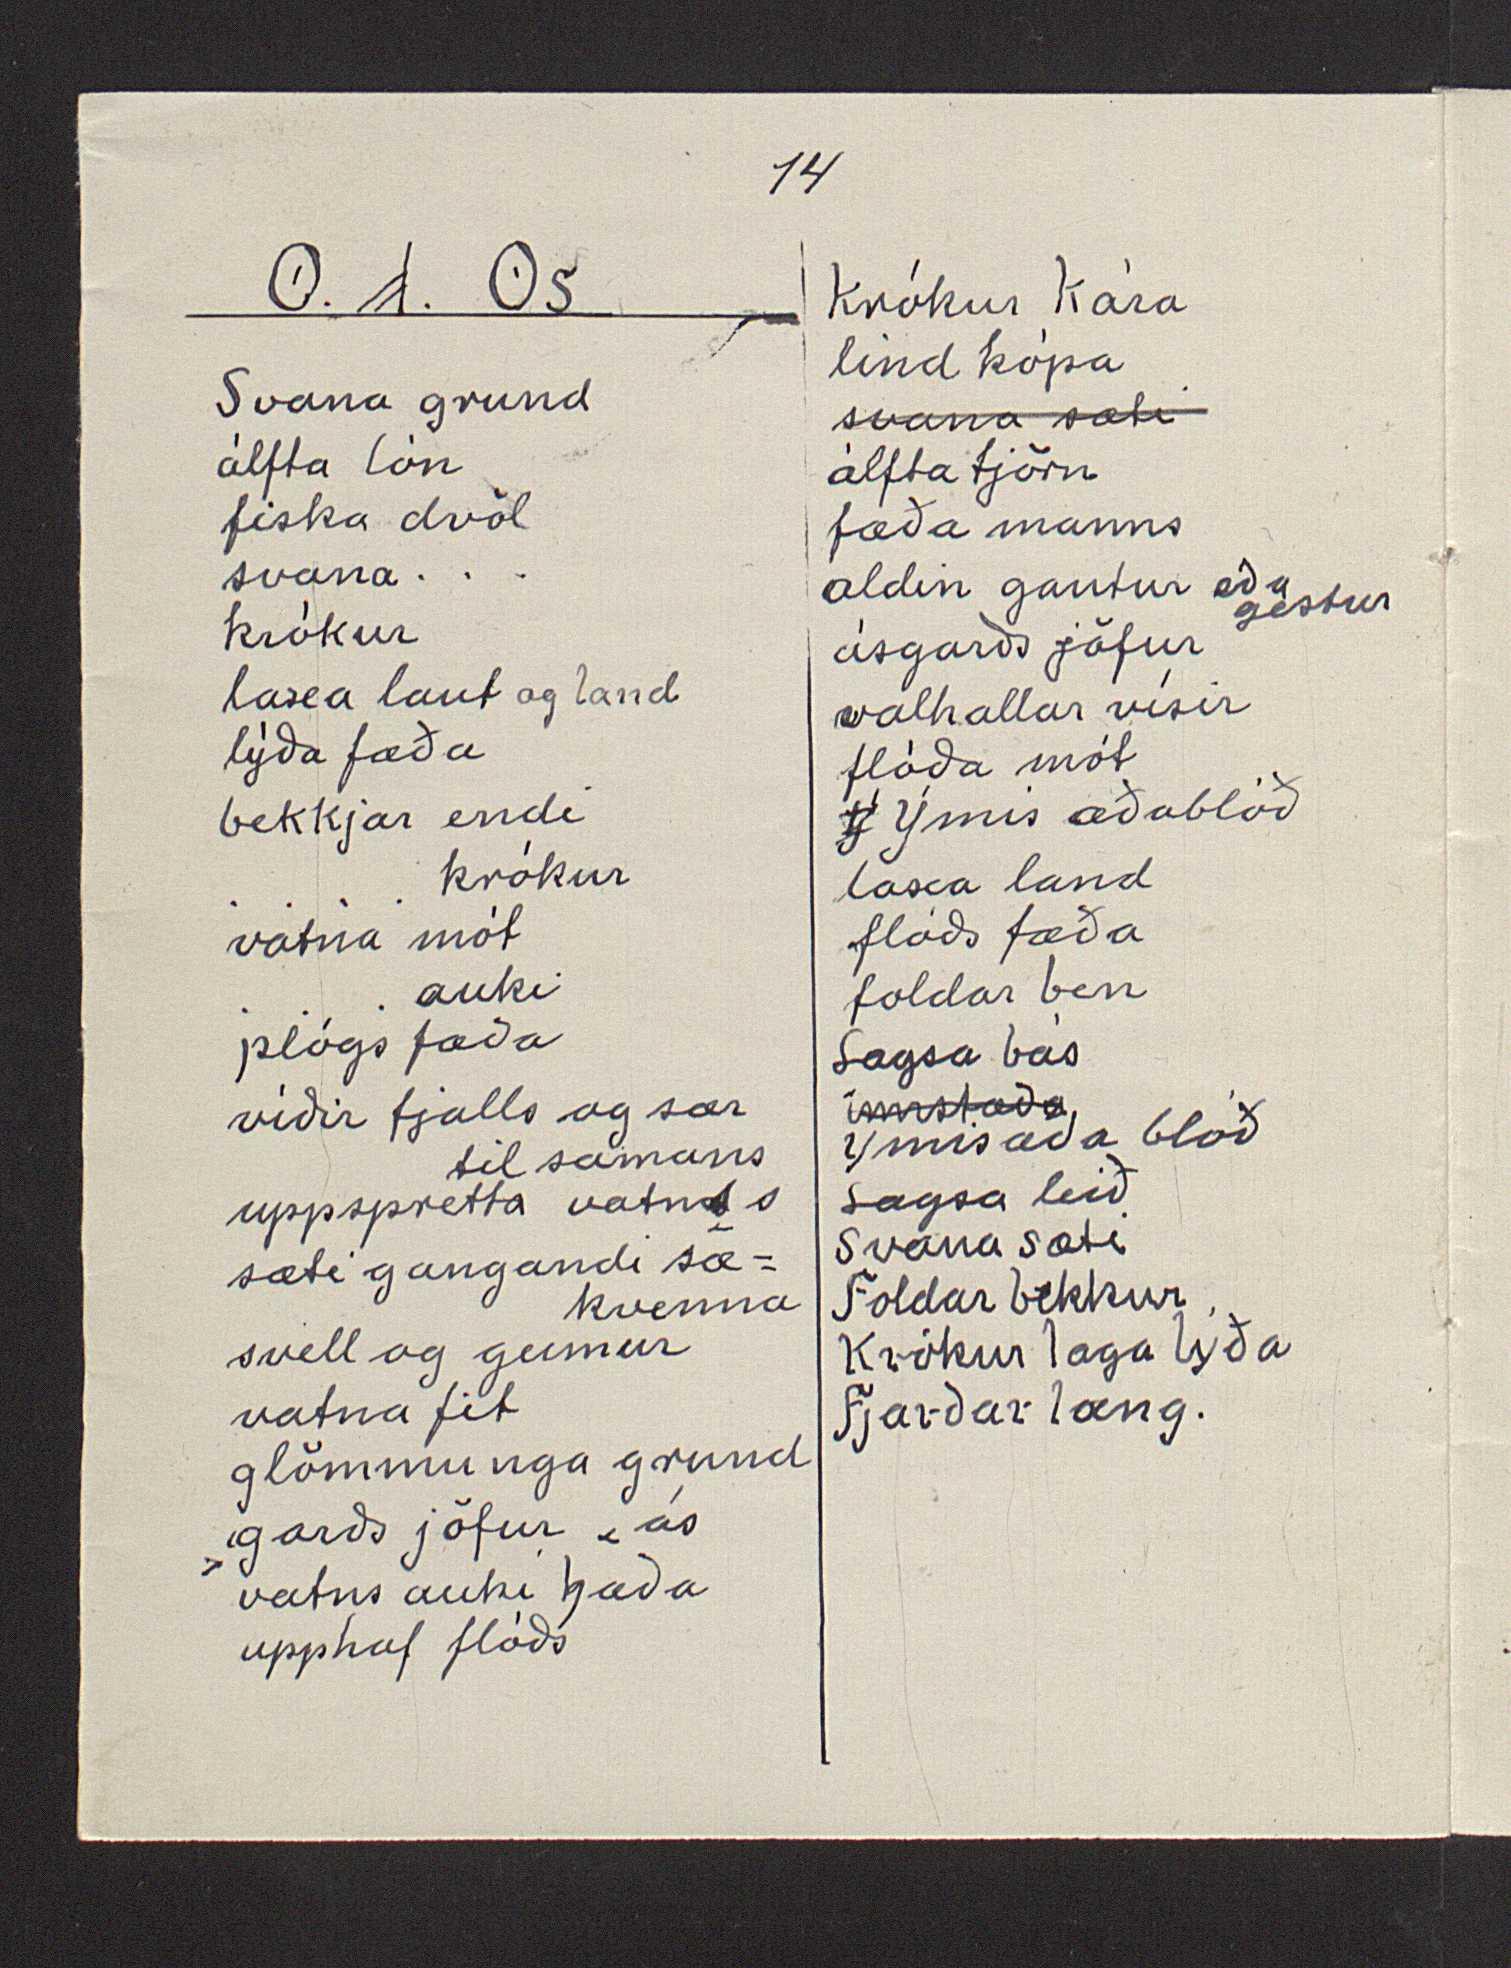 14
Ó. h. Ós
Svana grund
álfta lón
fiska dvöl
svana . . .
krókur
laxa laut og land
lýða fæða
bekkjar endi
. . . . krókur
vatna mót
. . . auki
plógs fæða
víðir fjalls og sær
til samans
uppspretta vatns
sæti gangandi sæ=
kvenna
svell og gumur
vatna fit
glömmunga grund
garðs jöfur ás
vatns auki hæða
upphaf flóðs
Krókur Kára
lind kópa
svana sæti
álfta tjörn
fæða manns
aldin gautur eða
gestur
ásgarðs jöfur
valhallar vísir
flóða mót
Ýmis æðablóð
laxa land
flóðs fæða
foldar ben
Lagsa bás
Ýmis æða blóð
Lagsa leið
Svana sæti
Foldar bekkur
Krókur laga lýða
Fjarðar læng.